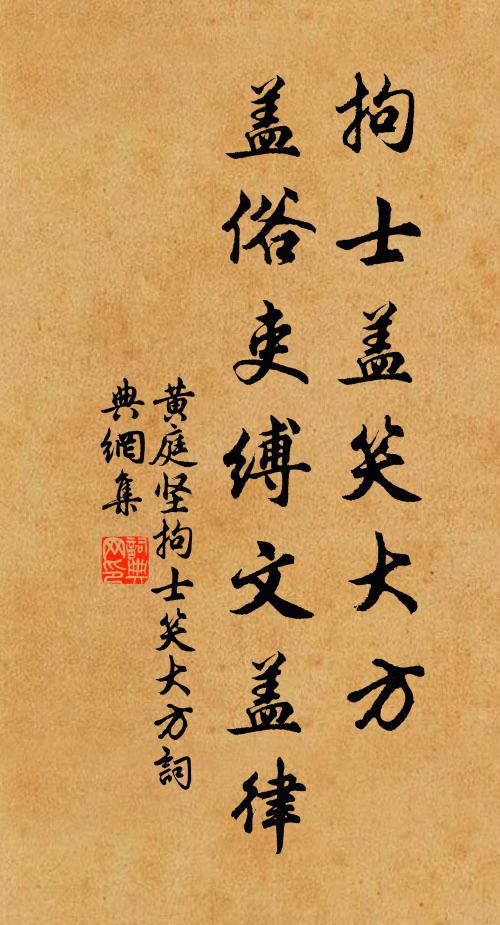 拘士盖笑大方
盖俗吏缚文盖律
黄庭坚拘士笑大方詞
典網集
詞典網印